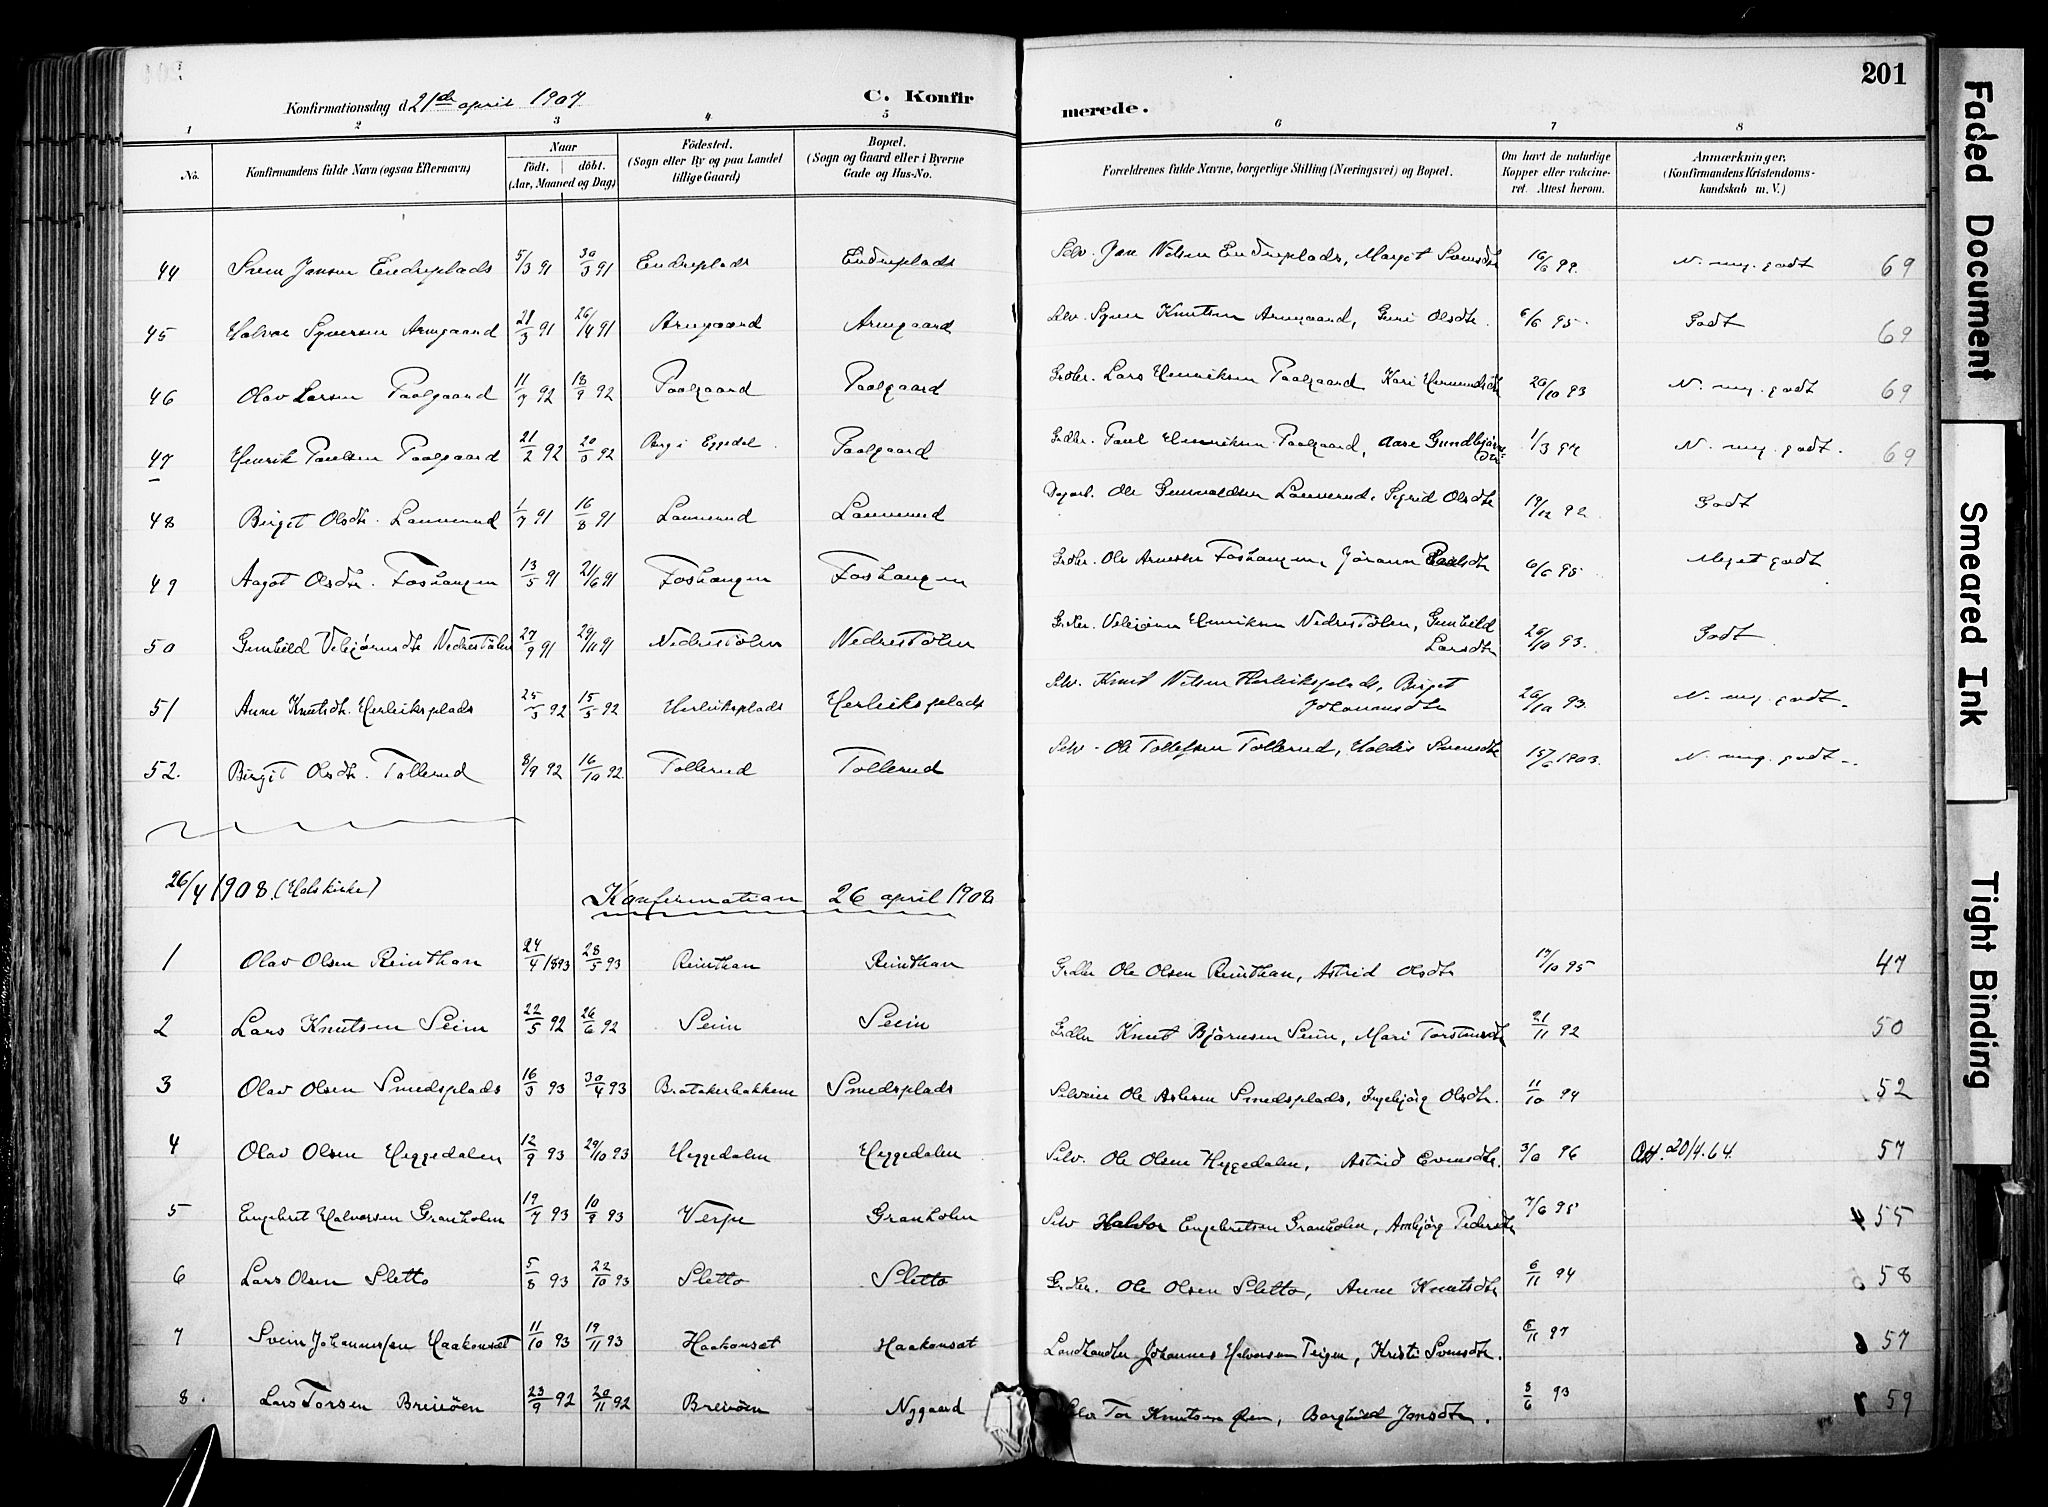 201
Konfirmationsdag d. 21de april 1907
C. Konfirmerede.
1 2 3 4 5 6 7 8
No.
Konfirmandens fulde Navn (ogsaa Efternavn)
Naar
födt. döbt.
(Aar, Maaned og Dag)
Födested.
(Sogn eller By og paa Landet
tillige Gaard)
Bopæl.
(Sogn og Gaard eller i Byerne
Gade og Hus-No.
Forældrenes fulde Navne, borgerlige Stilling (Næringsvei) og Bopæl.
Om havt de naturlige
Kopper eller vakcine-
ret. Attest herom.
Anmærkninger.
(Konfirmandens Kristendoms-
kundskab m. V.)
44 Svein Jansen Endreplads 5/3 91 30/3 91 Endreplads Endreplads Selv. Jan Nilsen Endreplads, Margit Svensdtr 16/6 99. N. meg. godt 69
45 Halvor Syversen Arnegaard 21/3 91 26/4 91 Arnegaard Arnegaard Selv. Syver Knutsen Arnegaard, Guri Olsdtr. 6/6 95. Godt 69
46 Olav Larsen Paalgaard 11/7 92 18/9 92 Paalgaard Paalgaard Grdbr. Lars Henriksen Paalgaard Kari Hermundsdtr 26/10 93 N. meg. godt 69
47 Henrik Paulsen Paalgaard 21/2 92 20/3 92 Berg i Eggedal. Paalgaard Grdbr. Paul Henriksen Paalgaard, Aase Gundbjørns-
dtr 1/3 94 N. meg. godt. 69
48 Birgit Olsdtr. Lannerud 1/7 91 16/8 91 Lannerud Lannerud Dagarb. Ole Gunvaldsen Lannerud, Sigrid Olsdtr 19/12 92 Godt
49 Aagot Olsdtr. Foshaugen 13/5 91 21/6 91 Foshaugen Foshaugen Grdbr. Ole Arnesen Foshaugen, Jørann Paulsdtr 6/6 95. Meget godt
50 Gunhild Vebjørnsdtr Nedrestølen 27/9 91 29/11 91 Nedrestølen Nedrestølen Grdbr. Vebjørn Henriksen Nedrestølen, Gunhild
Larsdtr 26/10 93. Godt
51 Anne Knutsdtr. Herleiksplads 25/3 92 15/5 92 Herleiksplads Herleiksplads Selv. Knut Nilsen Herleiksplads, Birgit
Johannesdtr 26/10 93. N. meg. godt.
52. Birgit Olsdtr. Tollerud 8/9 92 16/10 92 Tollerud Tollerud Selv. Ole Tollefsen Tollerud, Haldis Svensdtr 15/6 1903. N. meg. godt
26/4 1908. (Hols kirke) Konfirmation 26 april 1908
1 Olav Olsen Reinthan 24/4 1893 28/5 93 Reinthan Reinthan Grdbr Ole Olsen Reinthan, Astrid Olsdtr 17/10 95 47
2 Lars Knutsen Seim 22/5 92 26/6 92 Seim Seim Grdbr Knut Bjørnsen Seim, Mari Torstensdtr 21/11 92 50
3 Olav Olsen Smedsplads 16/3 93 30/4 93 Bratakerbakkene Smedsplads Selveier Ole Aslesen Smedsplads, Ingebjørg Olsdtr. 11/10 94 52
4 Olav Olsen Heggedalen 12/9 93 29/10 93 Heggedalen Heggedalen Selv. Ole Olsen Heggedalen, Astrid Evensdtr. 3/6 96 Att. 20/4.64. 57
5 Engebret Halvorsen Granholm 19/7 93 10/9 93 Verpe Granholm Selv Halvor Engebretsen Granholm, Ambjørg Pedersdtr 7/6 95 55
6 Lars Olsen Sletto 5/8 93 22/10 93 Sletto Sletto Grdbr. Ole Olsen Sletto, Anne Knutsdtr 6/11 94 58
7 Svein Johannessen Haakonsæt 11/10 93 19/11 93 Haakonsæt Haakonsæt Landhandler Johannes Halvorsen Teigen, Kristi Svensdtr. 6/11 97 57
8. Lars Torsen Breiøen 23/9 92 20/11 92 Breiøen Nygaard Selv Tor Knutsen Øen, Borghild Jonsdtr. 8/6 93 59
Faded Document
Smeared Ink
Tight Binding